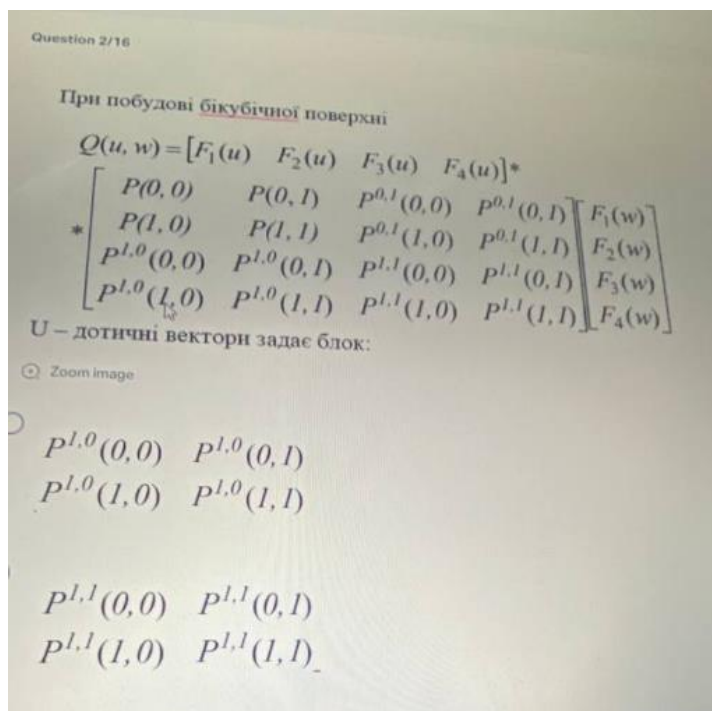 Question 2/16
При побудові бікубічної поверхні
Q(u, w) = [F₁(u) F₂(u) F₃(u) F₄(u)]*
* [ P(0, 0) P(0, 1) P^{0,1}(0,0) P^{0,1}(0,1) ] [ F₁(w) ]
P(1, 0) P(1, 1) P^{0,1}(1,0) P^{0,1}(1,1) F₂(w)
P^{1,0}(0,0) P^{1,0}(0,1) P^{1,1}(0,0) P^{1,1}(0,1) F₃(w)
P^{1,0}(1,0) P^{1,0}(1,1) P^{1,1}(1,0) P^{1,1}(1,1) F₄(w)
U – дотичні вектори задає блок:
Zoom image
P^{1,0}(0,0) P^{1,0}(0,1)
P^{1,0}(1,0) P^{1,0}(1,1)
P^{1,1}(0,0) P^{1,1}(0,1)
P^{1,1}(1,0) P^{1,1}(1,1)